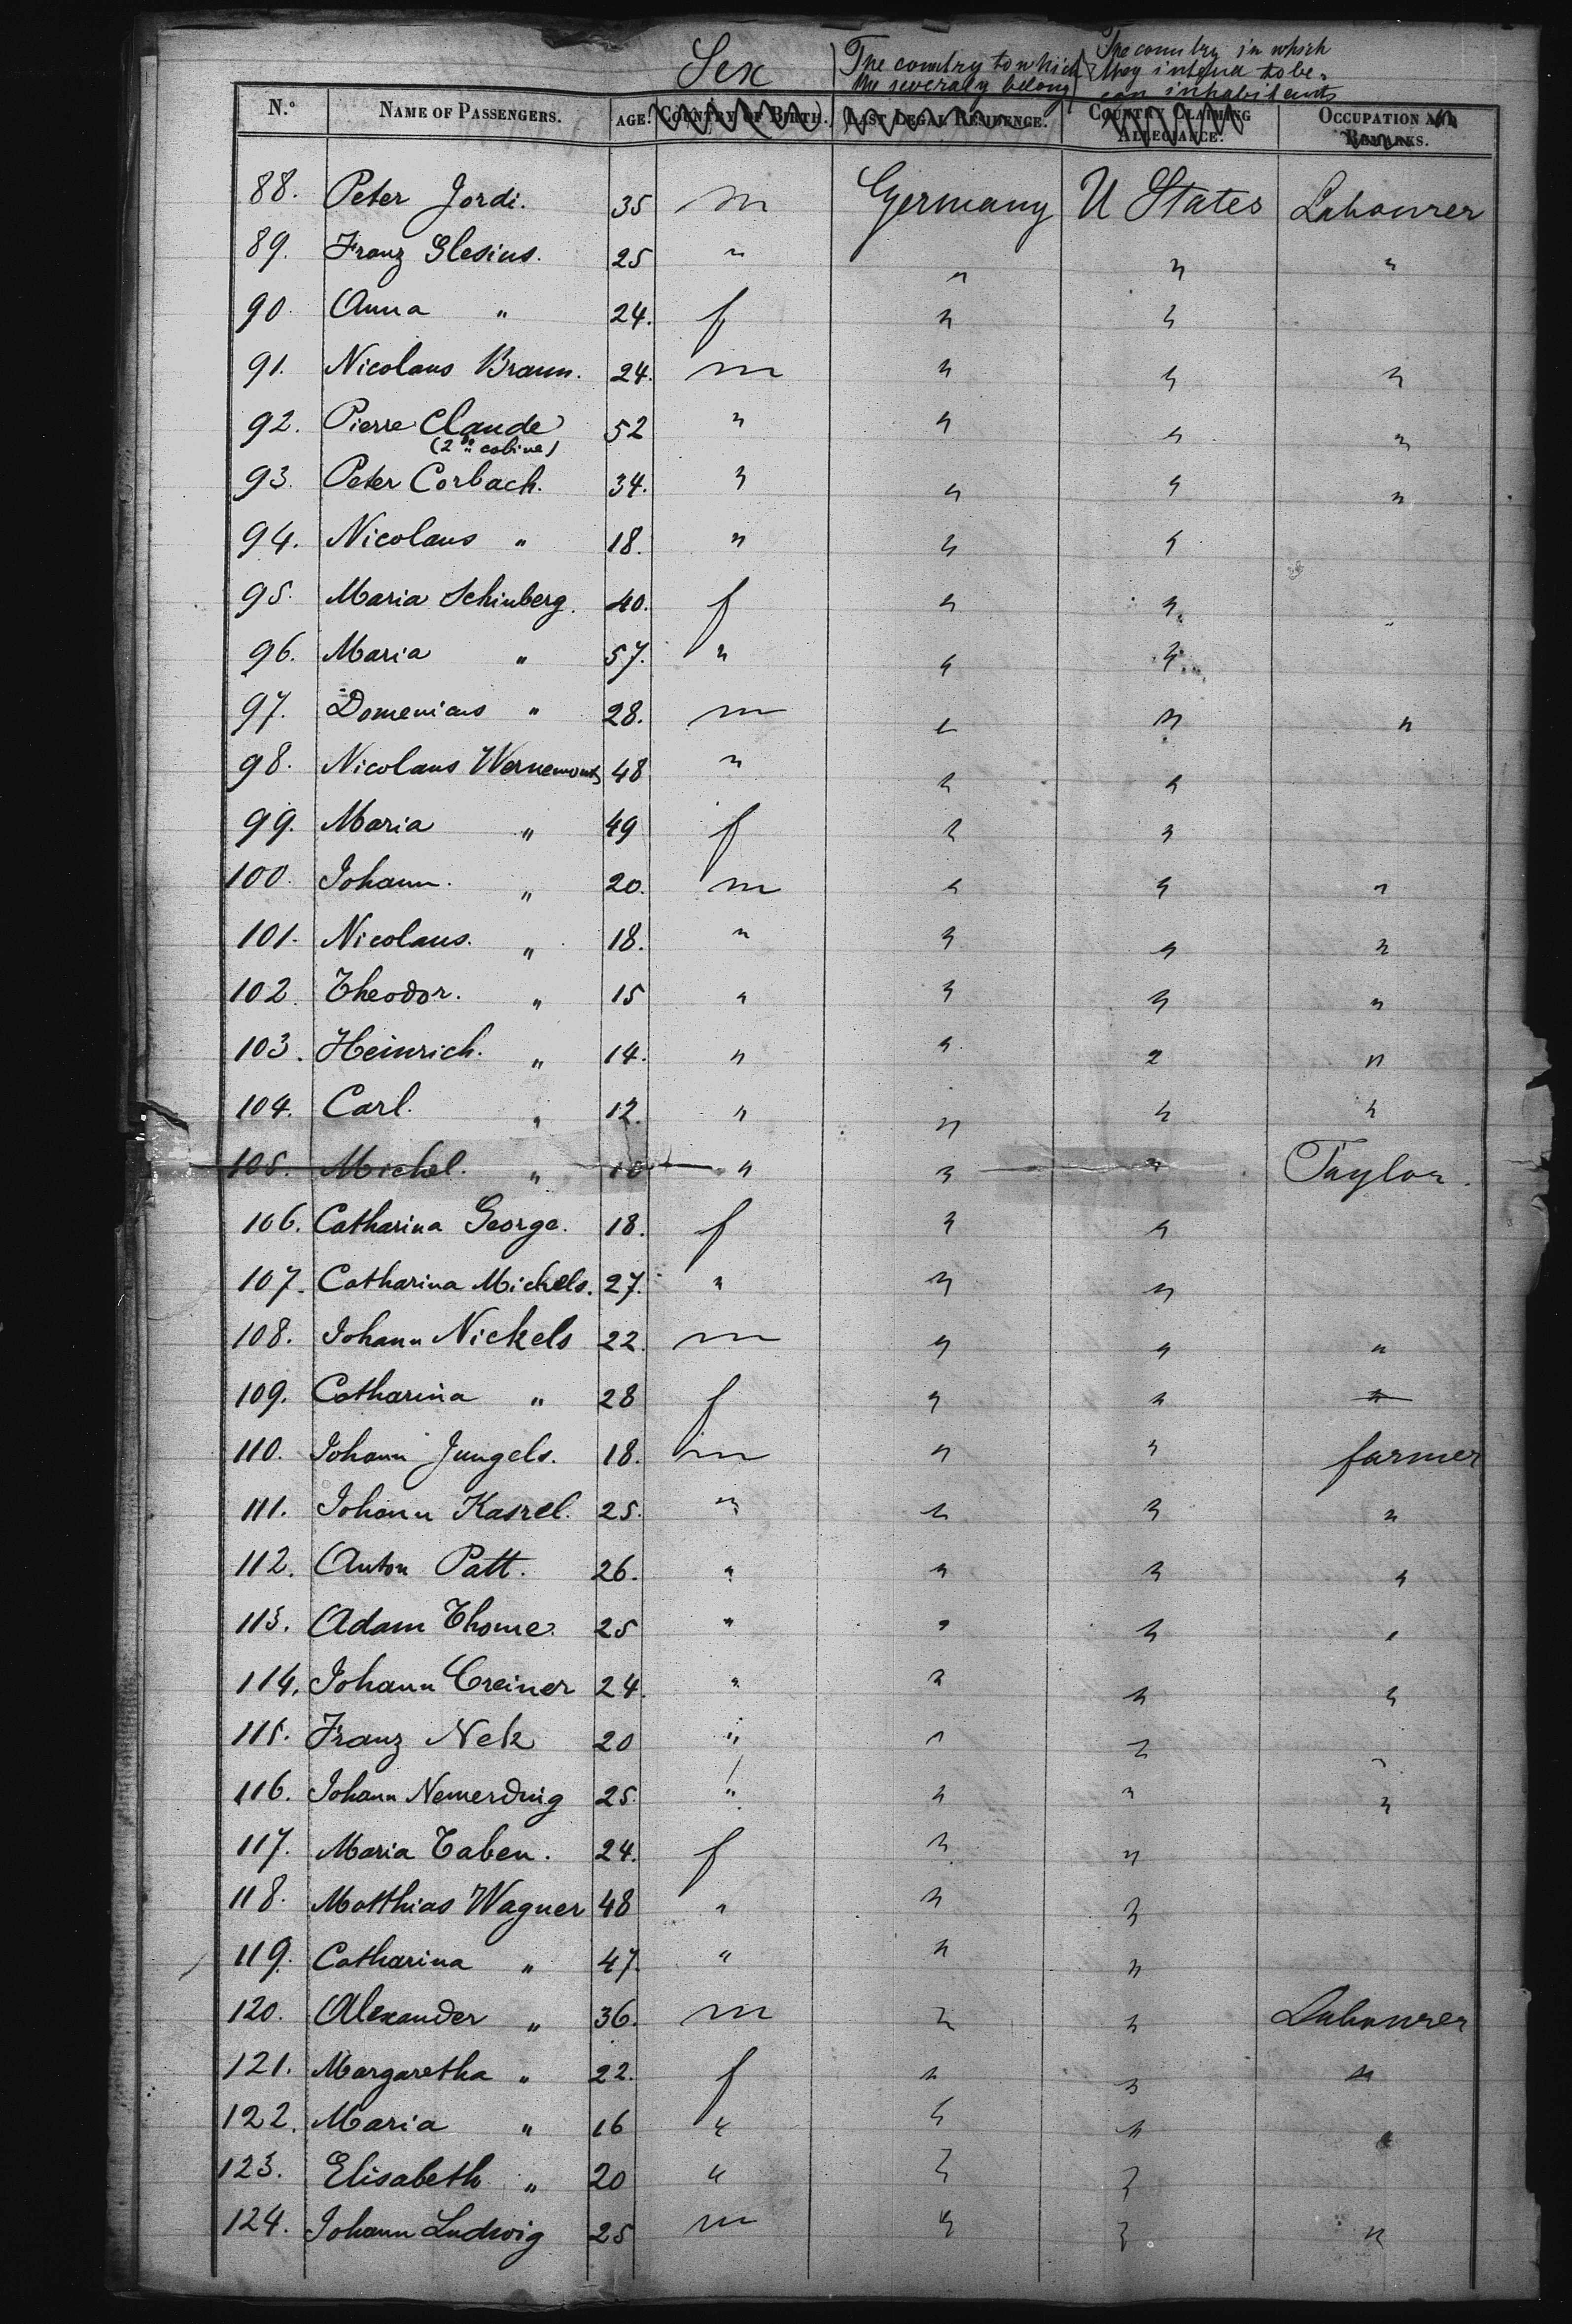 Sex
The country to which they severaly belong
The country in which they intend to become inhabitants
N.º NAME OF PASSENGERS. AGE. COUNTRY OF BIRTH. LAST LEGAL RESIDENCE. COUNTRY CLAIMING ALLEGIANCE. OCCUPATION AND REMARKS.
88. Peter Jordi. 35 m Germany U States Labourer
89. Franz Glesius. 25 " " " "
90. Anna " 24. f " "
91. Nicolaus Braun. 24. m " " "
92. Pierre Claude 52 " " " "
(2de cabine)
93. Peter Corbach. 34. " " " "
94. Nicolaus " 18. " " "
95. Maria Schinberg. 40. f " "
96. Maria " 57. " " "
97. Domenicus " 28. m " " "
98. Nicolaus Wernemont 48 " " "
99. Maria " 49 f " "
100. Johann. " 20. m " " "
101. Nicolaus. " 18. " " " "
102. Theodor. " 15 " " " "
103. Heinrich. " 14. " " " "
104. Carl. " 12. " " " "
105. Michel. " 10 " " " Taylor.
106. Catharina George. 18. f " "
107. Catharina Michels. 27. " " "
108. Johann Nickels 22. m " " "
109. Catharina " 28 f " " "
110. Johann Jungels. 18. m " " farmer
111. Johann Kasrel. 25. " " " "
112. Anton Patt. 26. " " " "
113. Adam Thome. 25 " " " "
114. Johann Creiner 24. " " " "
115. Franz Nek 20 " " " "
116. Johann Nemerding 25. " " " "
117. Maria Taben. 24. f " "
118. Matthias Wagner 48 " " "
119. Catharina " 47. " " "
120. Alexander " 36. m " " Labourer
121. Margaretha " 22. f " " "
122. Maria " 16 " " " "
123. Elisabeth " 20 " " "
124. Johann Ludwig 25 m " " "